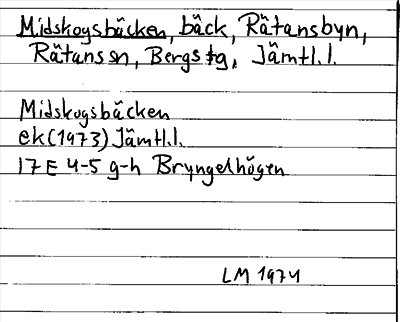 Midskogsbäcken, bäck, Rätansbyn,
Rätans sn, Bergs tg, Jämtl.l.
Midskogsbäcken
ek (1973) Jämtl.l.
17E 4-5 g-h Bryngelhögen
LM 1974